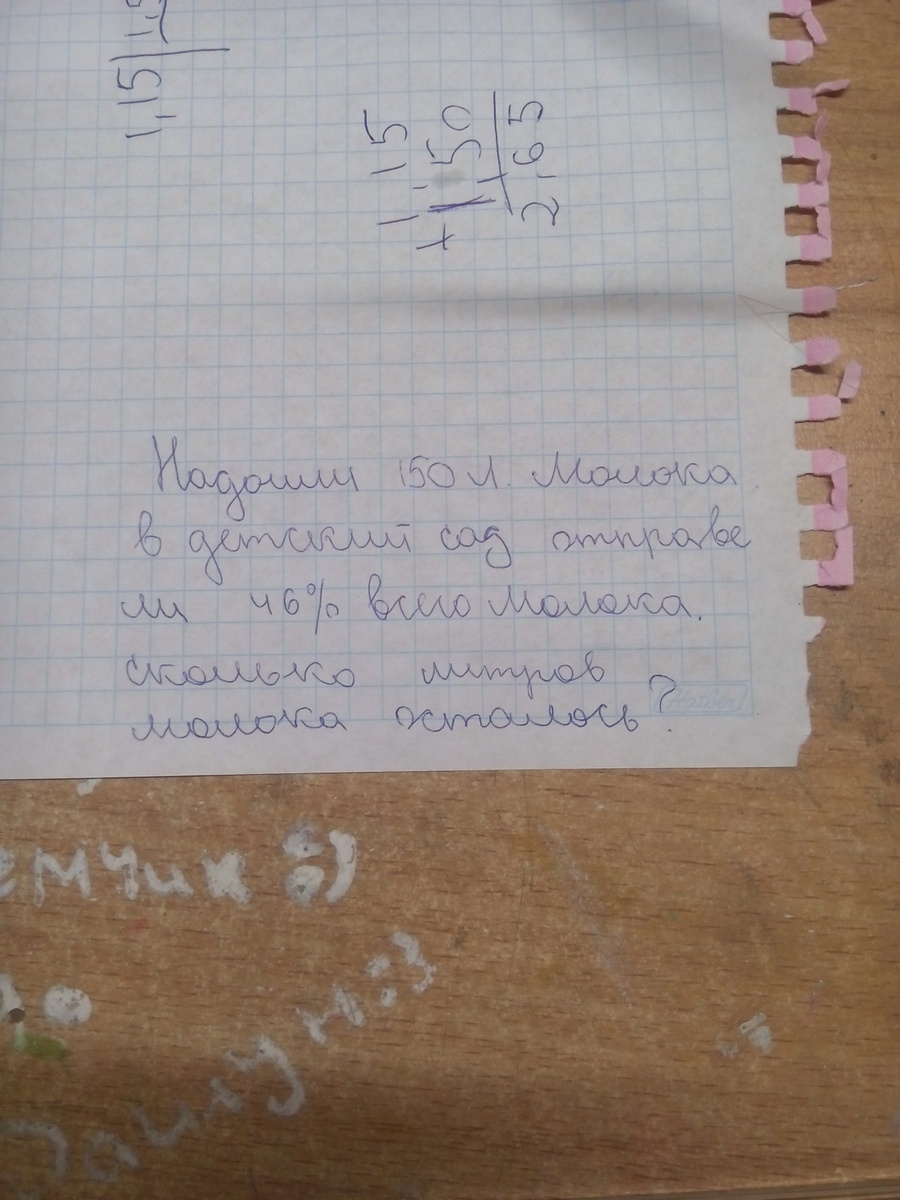 1,15
1,15
+ 1,50
2,65
Надоили 150 л. Молока
в детский сад отправе
ли 46% всего молока.
сколько литров
молока осталось?
Hatber
емчик :)